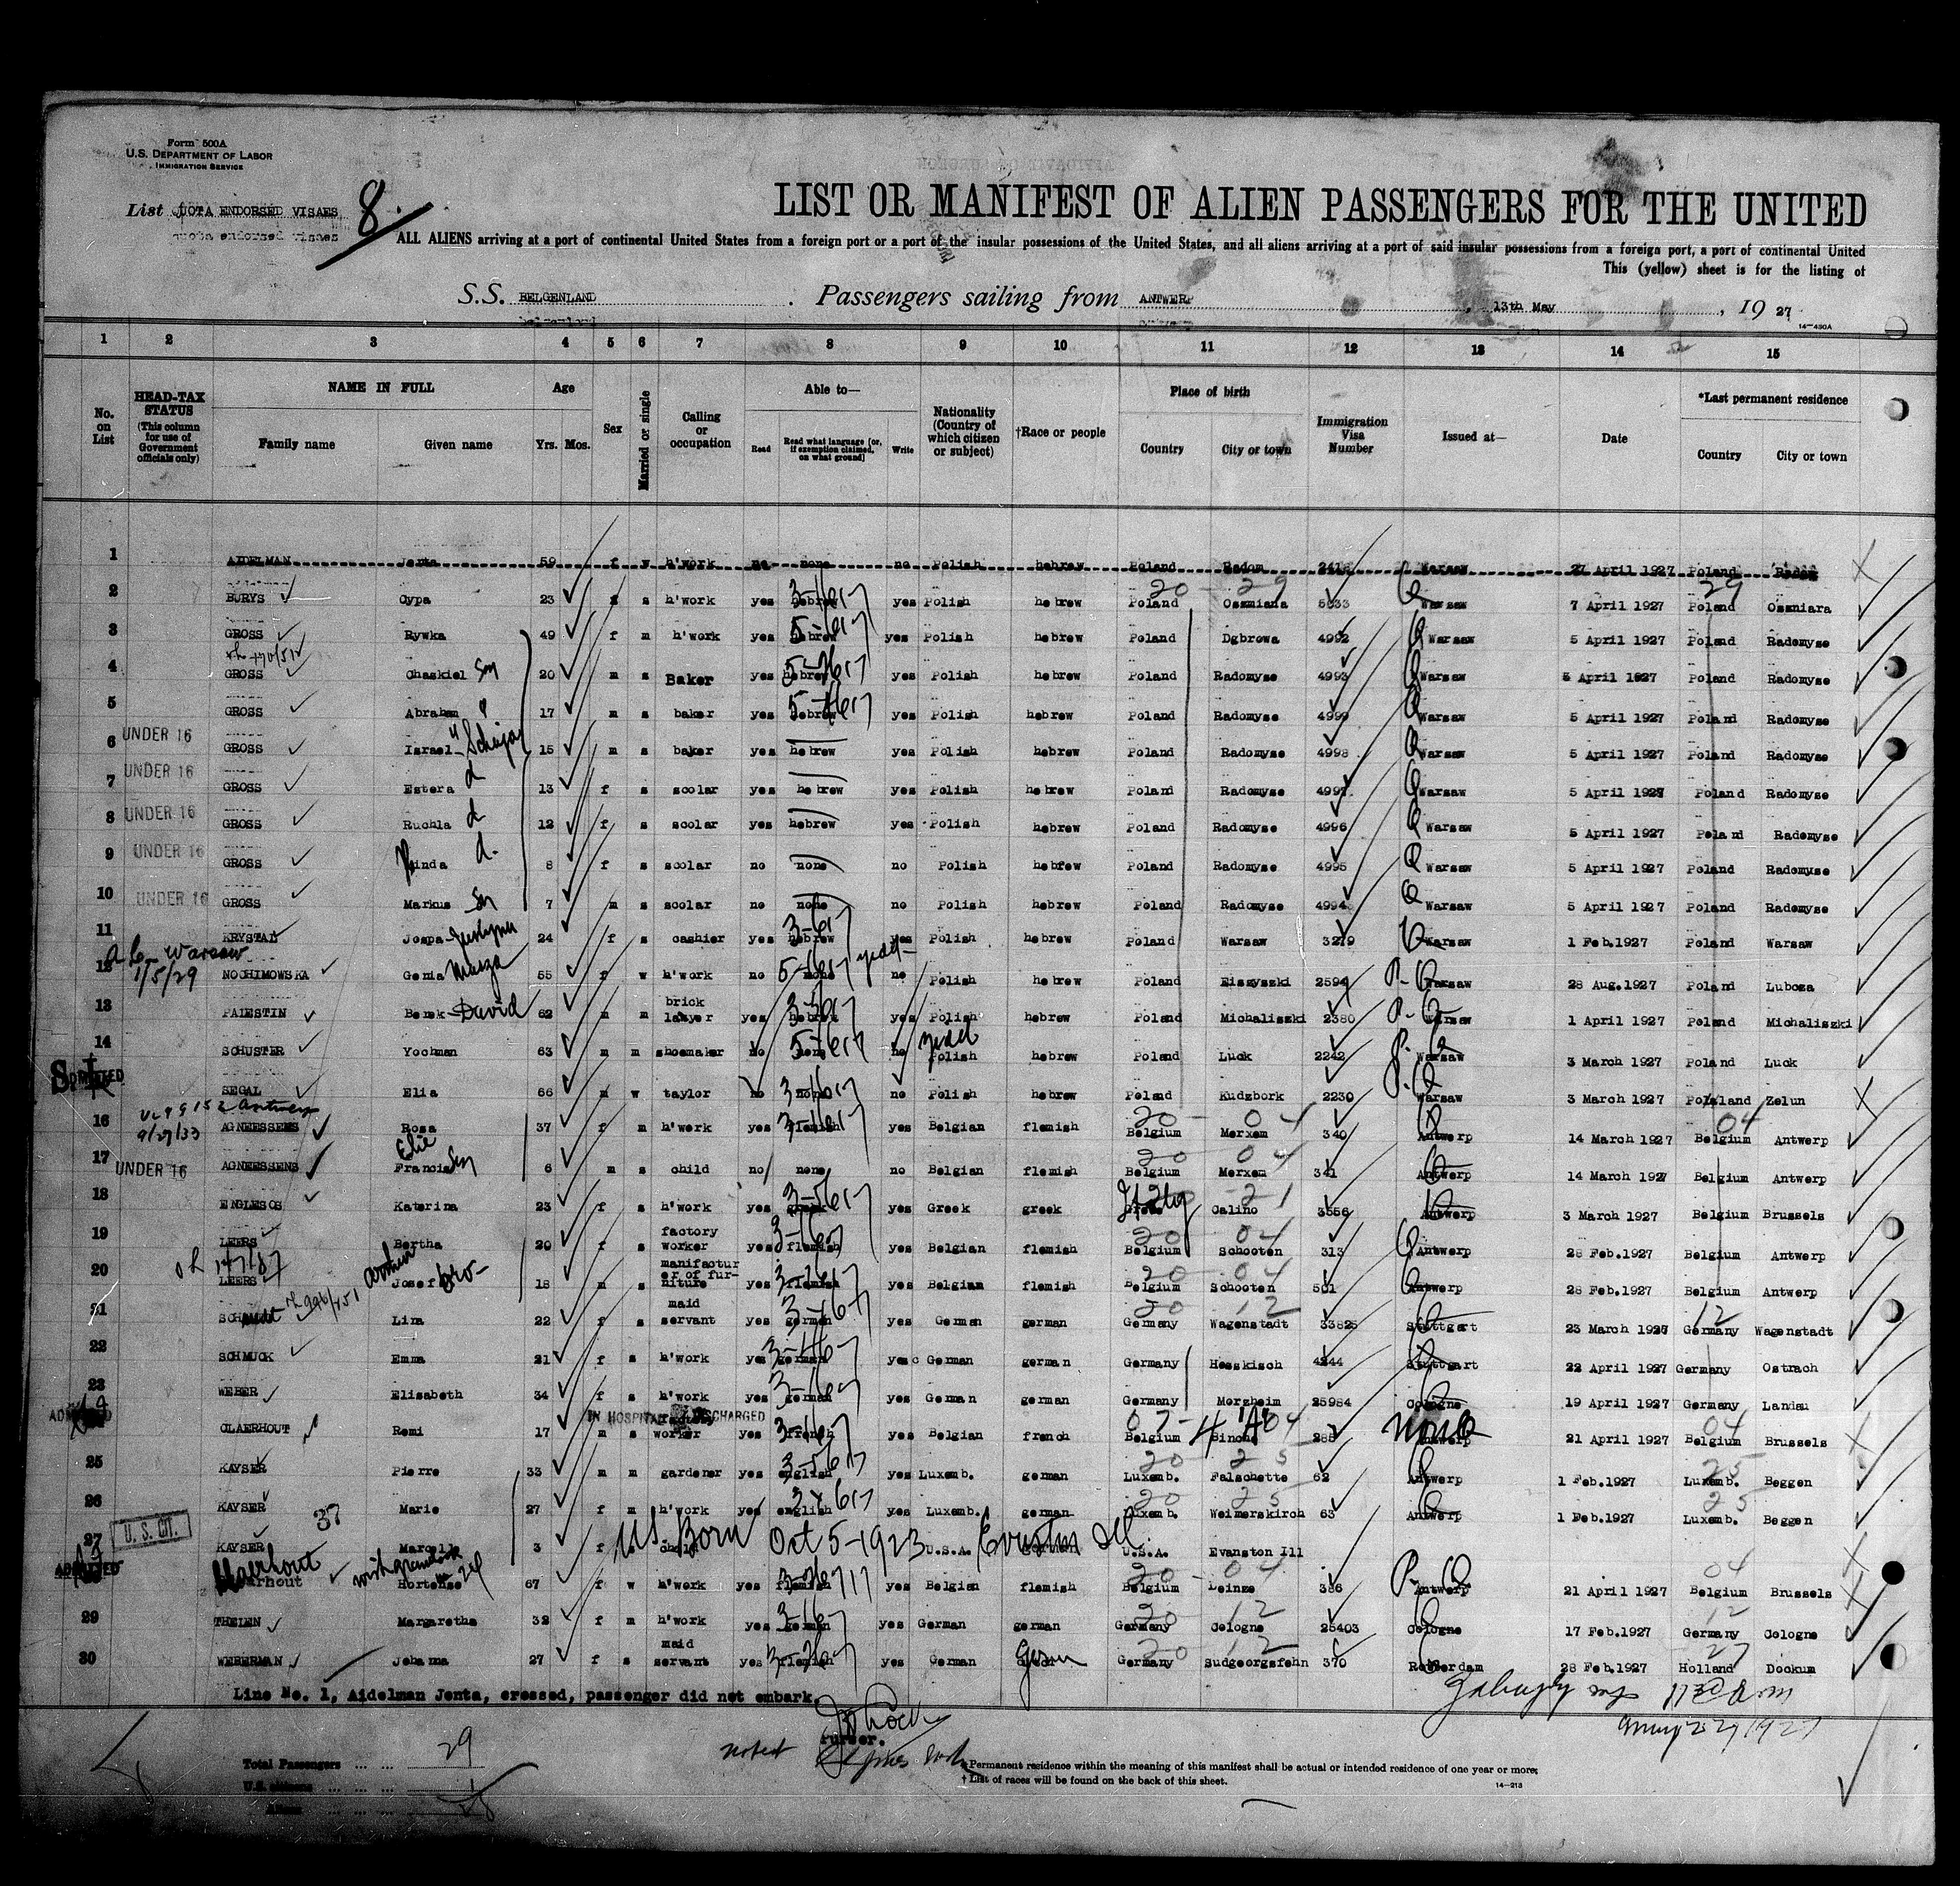 Form 500A
U.S. DEPARTMENT OF LABOR
IMMIGRATION SERVICE
List QUOTA ENDORSED VISAES 8.
quota endorsed visaes
LIST OR MANIFEST OF ALIEN PASSENGERS FOR THE UNITED
ALL ALIENS arriving at a port of continental United States from a foreign port or a port of the insular possessions of the United States, and all aliens arriving at a port of said insular possessions from a foreign port, a port of continental United
This (yellow) sheet is for the listing of
S.S. BELGENLAND . Passengers sailing from ANTWERP , 13th May , 19 27
14—430A
1 2 3 4 5 6 7 8 9 10 11 12 13 14 15
No. on List HEAD-TAX STATUS (This column for use of Government officials only) NAME IN FULL Family name Given name Age Yrs. Mos. Sex Married or single Calling or occupation Able to— Read Read what language [or, if exemption claimed, on what ground] Write Nationality (Country of which citizen or subject) †Race or people Place of birth Country City or town Immigration Visa Number Issued at— Date *Last permanent residence Country City or town
1 AIDELMAN Jenta 59 f w h'work no none no Polish hebrew Poland Radom Warsaw 27 April 1927 Poland Radom
2 BURYS Cypa 23 s h'work yes hebrew yes Polish hebrew Poland Ossmiana 5033 Warsaw 7 April 1927 Poland Ossniara
3 GROSS Rywka 49 f m h'work yes hebrew yes Polish hebrew Poland Dgbrowa 4992 Warsaw 5 April 1927 Poland Radomyse
4 GROSS Chaskiel Son 20 m s Baker yes hebrew yes Polish hebrew Poland Radomyse 4993 Warsaw 5 April 1927 Poland Radomyse
5 GROSS Abraham 17 m s baker yes hebrew yes Polish hebrew Poland Radomyse 4999 Warsaw 5 April 1927 Poland Radomyse
6 UNDER 16 GROSS Israel 15 m s baker yes hebrew yes Polish hebrew Poland Radomyse 4998 Warsaw 5 April 1927 Poland Radomyse
7 UNDER 16 GROSS Estera d 13 f s scolar yes hebrew yes Polish hebrew Poland Radomyse 4997 Warsaw 5 April 1927 Poland Radomyse
8 UNDER 16 GROSS Ruchla d 12 f s scolar yes hebrew yes Polish hebrew Poland Radomyse 4996 Warsaw 5 April 1927 Poland Radomyse
9 UNDER 16 GROSS inda d. 8 f s scolar no none no Polish hebrew Poland Radomyse 4995 Warsaw 5 April 1927 Poland Radomyse
10 UNDER 16 GROSS Markus Son 7 m s scolar no none no Polish hebrew Poland Radomyse 4994 Warsaw 5 April 1927 Poland Radomyse
11 KRYSTAL Jospa 24 f s cashier yes hebrew yes Polish hebrew Poland Warsaw 3279 Warsaw 1 Feb.1927 Poland Warsaw
Warsaw 1/5/29
12 NOCHIMOWSKA Genia 55 f w h'work no none Polish hebrew Poland Eiszyszki 2594 Warsaw 28 Aug.1927 Poland Luboza
13 PALESTIN Berek-David 62 m m brick layer yes hebrew yes Polish hebrew Poland Michaliszki 2380 Warsaw 1 April 1927 Poland Michaliszki
14 SCHUSTER Yochman 63 m m shoemaker no none no Polish hebrew Poland Luck 2242 Warsaw 3 March 1927 Poland Luck
ADMITTED SEGAL Elia 66 m w taylor no none no Polish hebrew Poland Kudzbork 2230 Warsaw 3 March 1927 Poland Zelun
9/27/33
16 AGNEESSENS Rosa 37 f m h'work yes flemish yes Belgian flemish Belgium Merxem 340 Antwerp 14 March 1927 Belgium Antwerp
17 UNDER 16 AGNEESSENS Francis Son 6 m s child no none no Belgian flemish Belgium Merxem 341 Antwerp 14 March 1927 Belgium Antwerp
18 ENGLESOS Katerina 23 f s h'work yes greek yes Greek greek Italy Calino 3556 Antwerp 3 March 1927 Belgium Brussels
19 LEERS Bertha 20 f s factory worker yes flemish yes Belgian flemish Belgium Schooten 313 Antwerp 28 Feb.1927 Belgium Antwerp
20 LEERS Josef bro- 18 m s manifactur er of fur- niture yes flemish yes Belgian flemish Belgium Schooten 501 Antwerp 28 Feb.1927 Belgium Antwerp
21 Lina 22 f s maid servant yes german yes German german Germany Wagenstadt 33825 Stuttgart 23 March 1927 Germany Wagenstadt
22 SCHMUCK Emma 21 f s h'work yes german yes German german Germany Hosskisch 4244 Stuttgart 22 April 1927 Germany Ostrach
23 WEBER Elisabeth 34 f s h'work yes german yes German german Germany Morzheim 25984 Cologne 19 April 1927 Germany Landau
ADMITTED IN HOSPITAL DISCHARGED
CLAERHOUT Remi 17 m s factory worker yes french yes Belgian french Belgium Binche 285 Antwerp 21 April 1927 Belgium Brussels
25 KAYSER Pierre 33 m m gardener yes english yes Luxemb. german Luxemb. Falschette 62 Antwerp 1 Feb.1927 Luxemb. Beggen
26 KAYSER Marie 27 f m h'work yes english yes Luxemb. german Luxemb. Weimerskirch 63 Antwerp 1 Feb.1927 Luxemb. Beggen
27 U.S. CIT. KAYSER Marcelle 3 f child U.S. Born Oct 5-1923 U.S.A. Evanston Ill U.S.A. Evanston Ill
ADMITTED Hortense 67 f w h'work yes flemish yes Belgian flemish Belgium Deinze 386 Antwerp 21 April 1927 Belgium Brussels
29 THELEN Margaretha 32 f m h'work yes german yes German german Germany Cologne 25403 Cologne 17 Feb.1927 Germany Cologne
30 WEBERMAN Johanna 27 f s maid servant yes flemish yes German Germ Germany Sudgeorgsfehn 370 Rotterdam 28 Feb.1927 Holland Dockum
Line No. 1, Aidelman Jenta, crossed, passenger did not embark.
Purser.
Total Passengers ... ... 29
U.S. citizens ... ... ... 1
Aliens ... ... ... 28
*Permanent residence within the meaning of this manifest shall be actual or intended residence of one year or more.
†List of races will be found on the back of this sheet.
14—213